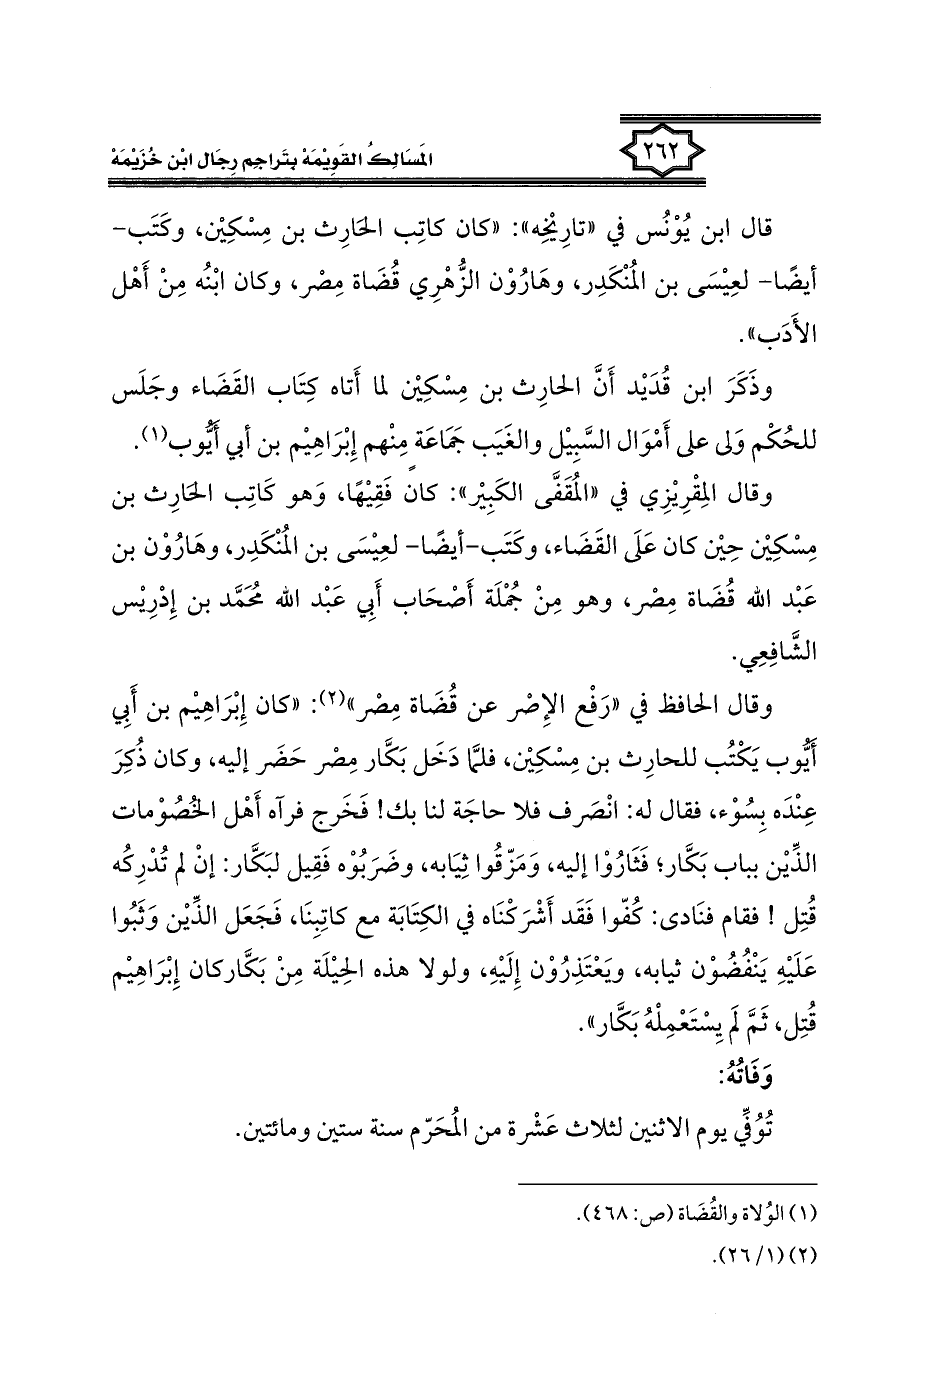 ٢٦٢
المَسَالِكُ القَوِيْمَهْ بِتَراجِم رِجَال ابْن خُزَيْمَهْ
قال ابن يُوْنُس في «تارِيْخِه»: «كان كاتِب الحَارِث بن مِسْكِيْن، وكَتَب-
أيضًا- لعِيْسَى بن المُنْكَدِر، وهَارُوْن الزُّهْرِي قُضَاة مِصْر، وكان ابْنُه مِنْ أَهْل
الأَدَب».
وذَكَرَ ابن قُدَيْد أَنَّ الحارِث بن مِسْكِيْن لما أَتاه كِتَاب القَضَاء وجَلَس
للحُكْم وَلى على أَمْوَال السَّبِيْل والغَيَب جَمَاعَة مِنْهم إِبْرَاهِيْم بن أبي أَيُّوب(١).
وقال المِقْرِيْزِي في «المُقَفَّى الكَبِيْر»: كان فَقِيْهًا، وَهو كَاتِب الحَارِث بن
مِسْكِيْن حِيْن كان عَلَى القَضَاء، وكَتَب-أيضًا- لعِيْسَى بن المُنْكَدِر، وهَارُوْن بن
عَبْد الله قُضَاة مِصْر، وهو مِنْ جُمْلَة أَصْحَاب أَبِي عَبْد الله مُحَمَّد بن إِدْرِيْس
الشَّافِعِي.
وقال الحافظ في «رَفْع الإِصْر عن قُضَاة مِصْر»(٢): «كان إِبْرَاهِيْم بن أَبِي
أَيُّوب يَكْتُب للحارِث بن مِسْكِيْن، فلمَّا دَخَل بَكَّار مِصْر حَضَر إليه، وكان ذُكِرَ
عِنْدَه بِسُوْء، فقال له: انْصَرف فلا حاجَة لنا بك! فَخَرج فرآه أَهْل الخُصُوْمات
الذِّيْن بباب بَكَّار؛ فَثَارُوْا إليه، وَمَزّقُوا ثِيَابه، وضَرَبُوْه فَقِيل لبَكَّار: إِنْ لم تُدْرِكُه
قُتِل ! فقام فنَادى: كُفّوا فَقَد أَشْرَكْنَاه في الكِتَابَة مع كاتِبِنَا، فَجَعَل الذِّيْن وَثَبُوا
عَلَيْهِ يَنْفُضُوْن ثيابه، ويَعْتَذِرُوْن إِلَيْهِ، ولولا هذه الحِيْلَة مِنْ بَكَّاركان إِبْرَاهِيْم
قُتِل، ثَمَّ لَم يِسْتَعْمِلْهُ بَكَّار».
وَفَاتُهُ:
تُوُفِّي يوم الاثنين لثلاث عَشْرة من المُحَرّم سنة ستين ومائتين.
(١) الوُلاة والقُضَاة (ص: ٤٦٨).
(٢) (١/ ٢٦).